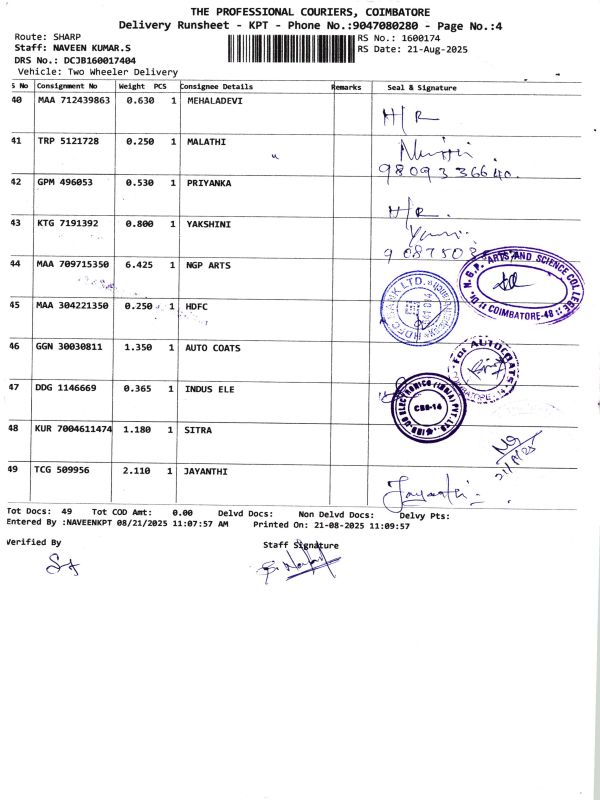 THE PROFESSIONAL COURIERS, COIMBATORE
Delivery Runsheet - KPT - Phone No.:9047080280 - Page No.:4
Route: SHARP
RS No.: 1600174
Staff: NAVEEN KUMAR.S
RS Date: 21-Aug-2025
DRS No.: DCJB160017404
Vehicle: Two Wheeler Delivery
S No Consignment No Weight PCS Consignee Details Remarks Seal & Signature
40 MAA 712439863 0.630 1 MEHALADEVI
H/R
41 TRP 5121728 0.250 1 MALATHI
9809336640.
42 GPM 496053 0.530 1 PRIYANKA
H/R.
43 KTG 7191392 0.800 1 YAKSHINI
44 MAA 709715350 6.425 1 NGP ARTS
Dr. N.G.P. ARTS AND SCIENCE COLLEGE
COIMBATORE-48
45 MAA 304221350 0.250 1 HDFC
HDFC BANK LTD.
46 GGN 30030811 1.350 1 AUTO COATS
For AUTOCOATS
COIMBATORE-14
47 DDG 1146669 0.365 1 INDUS ELE
ELECTRONICS (INDIA) PVT. LTD
CBE-14
48 KUR 7004611474 1.180 1 SITRA
49 TCG 509956 2.110 1 JAYANTHI
Jayanthi
Tot Docs: 49 Tot COD Amt: 0.00 Delvd Docs: Non Delvd Docs: Delvy Pts:
Entered By :NAVEENKPT 08/21/2025 11:07:57 AM Printed On: 21-08-2025 11:09:57
Verified By
Staff Signature